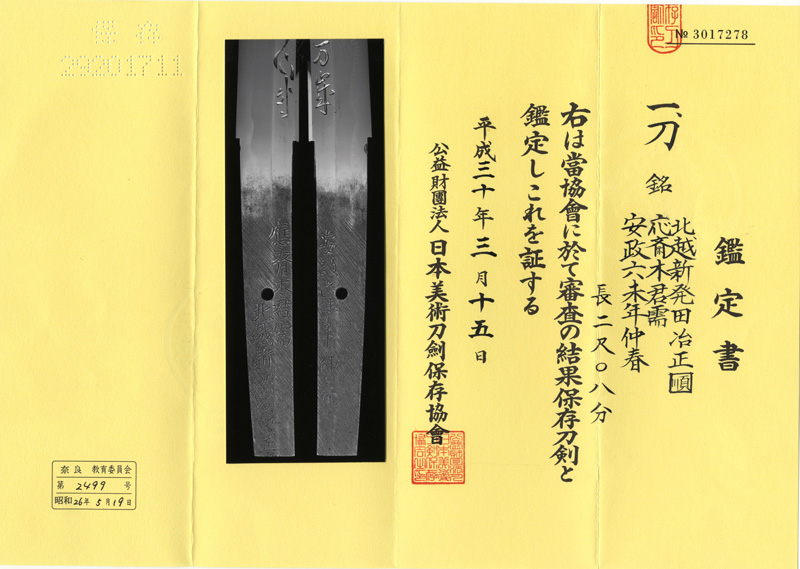 № 3017278
鑑定書
一、刀 銘 北越新発田冶正順
応斉木君需
安政六未年仲春
長二尺〇八分
右は當協會に於て審査の結果保存刀剣と
鑑定しこれを証する
平成三十年三月十五日
公益財團法人日本美術刀剣保存協會
保存
29201711
奈良 教育委員会
第 2499 号
昭和26年5月19日